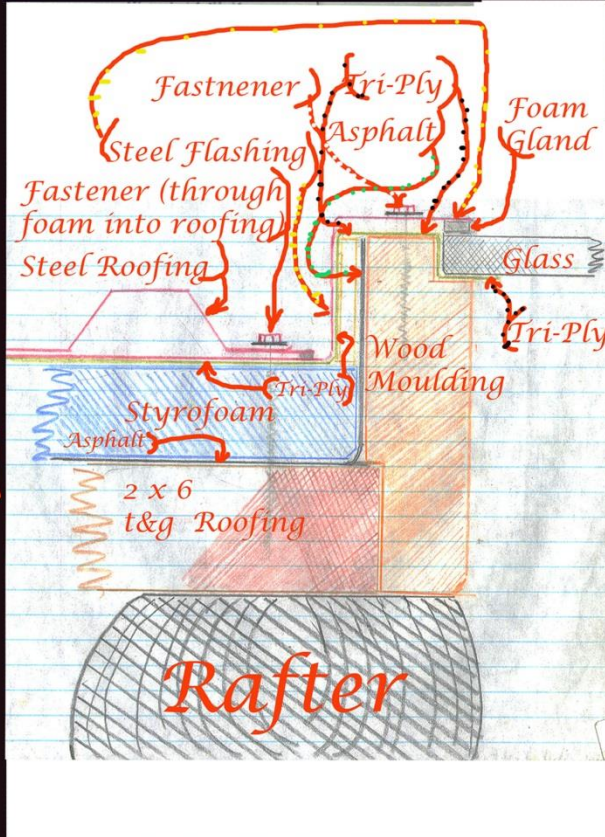 Fastnener
Tri-Ply
Asphalt
Foam
Gland
Steel Flashing
Fastener (through
foam into roofing)
Steel Roofing
Glass
Tri-Ply
Wood
Moulding
(Tri-Ply)
Styrofoam
Asphalt
2 x 6
t&g Roofing
Rafter